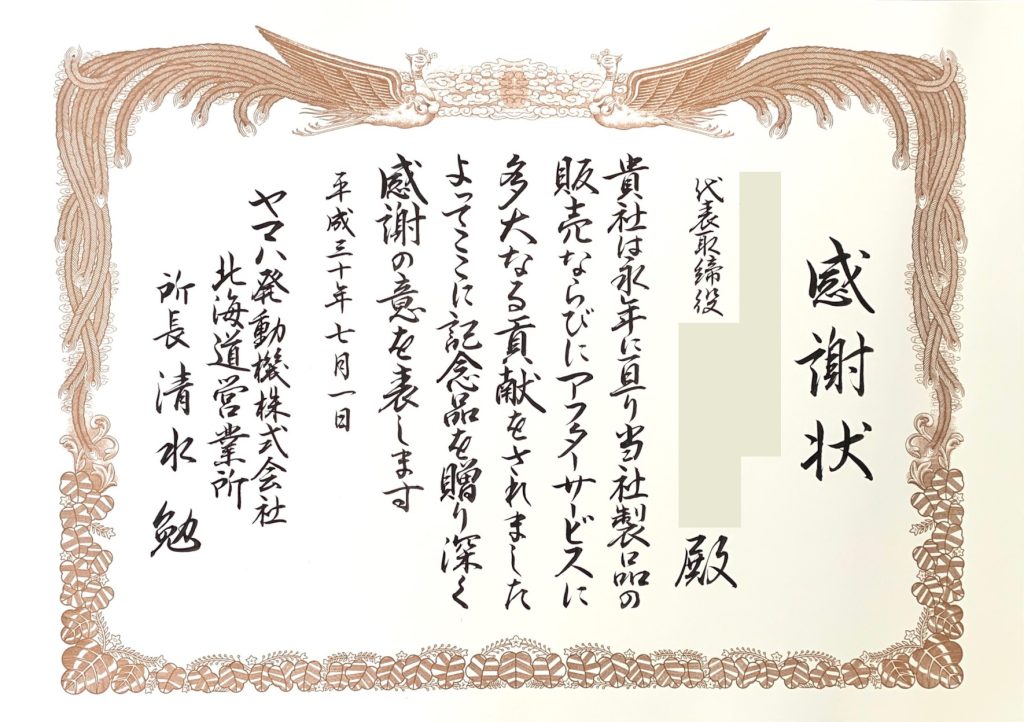 感謝状
代表取締役
殿
貴社は永年に亘り当社製品の
販売ならびにアフターサービスに
多大なる貢献をされました
よってここに記念品を贈り深く
感謝の意を表します
平成三十年七月一日
ヤマハ発動機株式会社
北海道営業所
所長 清水 勉